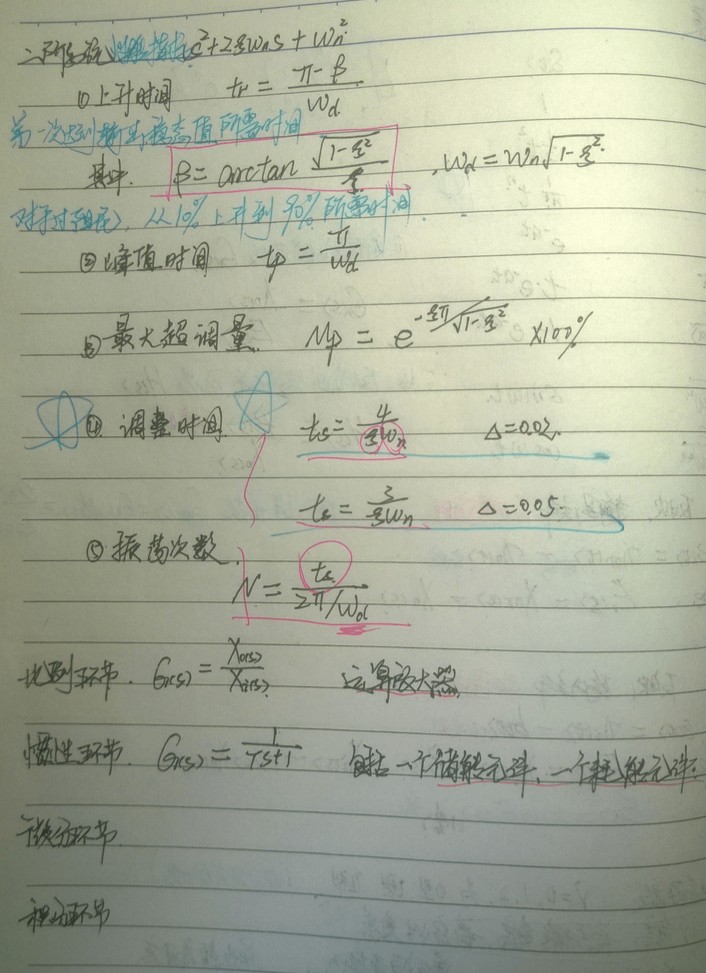 二阶系统性能指标 s²+2ξωₙs+ωₙ²
①上升时间 tr = (π-β)/ωd
第一次达到输出稳态值所需时间
其中. β = arctan √(1-ξ²)/ξ , ωd = ωn√(1-ξ²).
对于过阻尼), 从10%上升到90%所需时间.
②峰值时间 tp = π/ωd
③最大超调量. Mp = e^(-ξπ/√(1-ξ²)) ×100%
④调整时间. ts = 4/(ξωn) Δ=0.02.
ts = 3/(ξωn) Δ=0.05.
⑤振荡次数. N = ts/(2π/ωd)
比例环节. G(s) = Xo(s)/Xi(s) 运算放大器.
惯性环节. G(s) = 1/(Ts+1) 包括一个储能元件、一个耗能元件.
微分环节.
积分环节